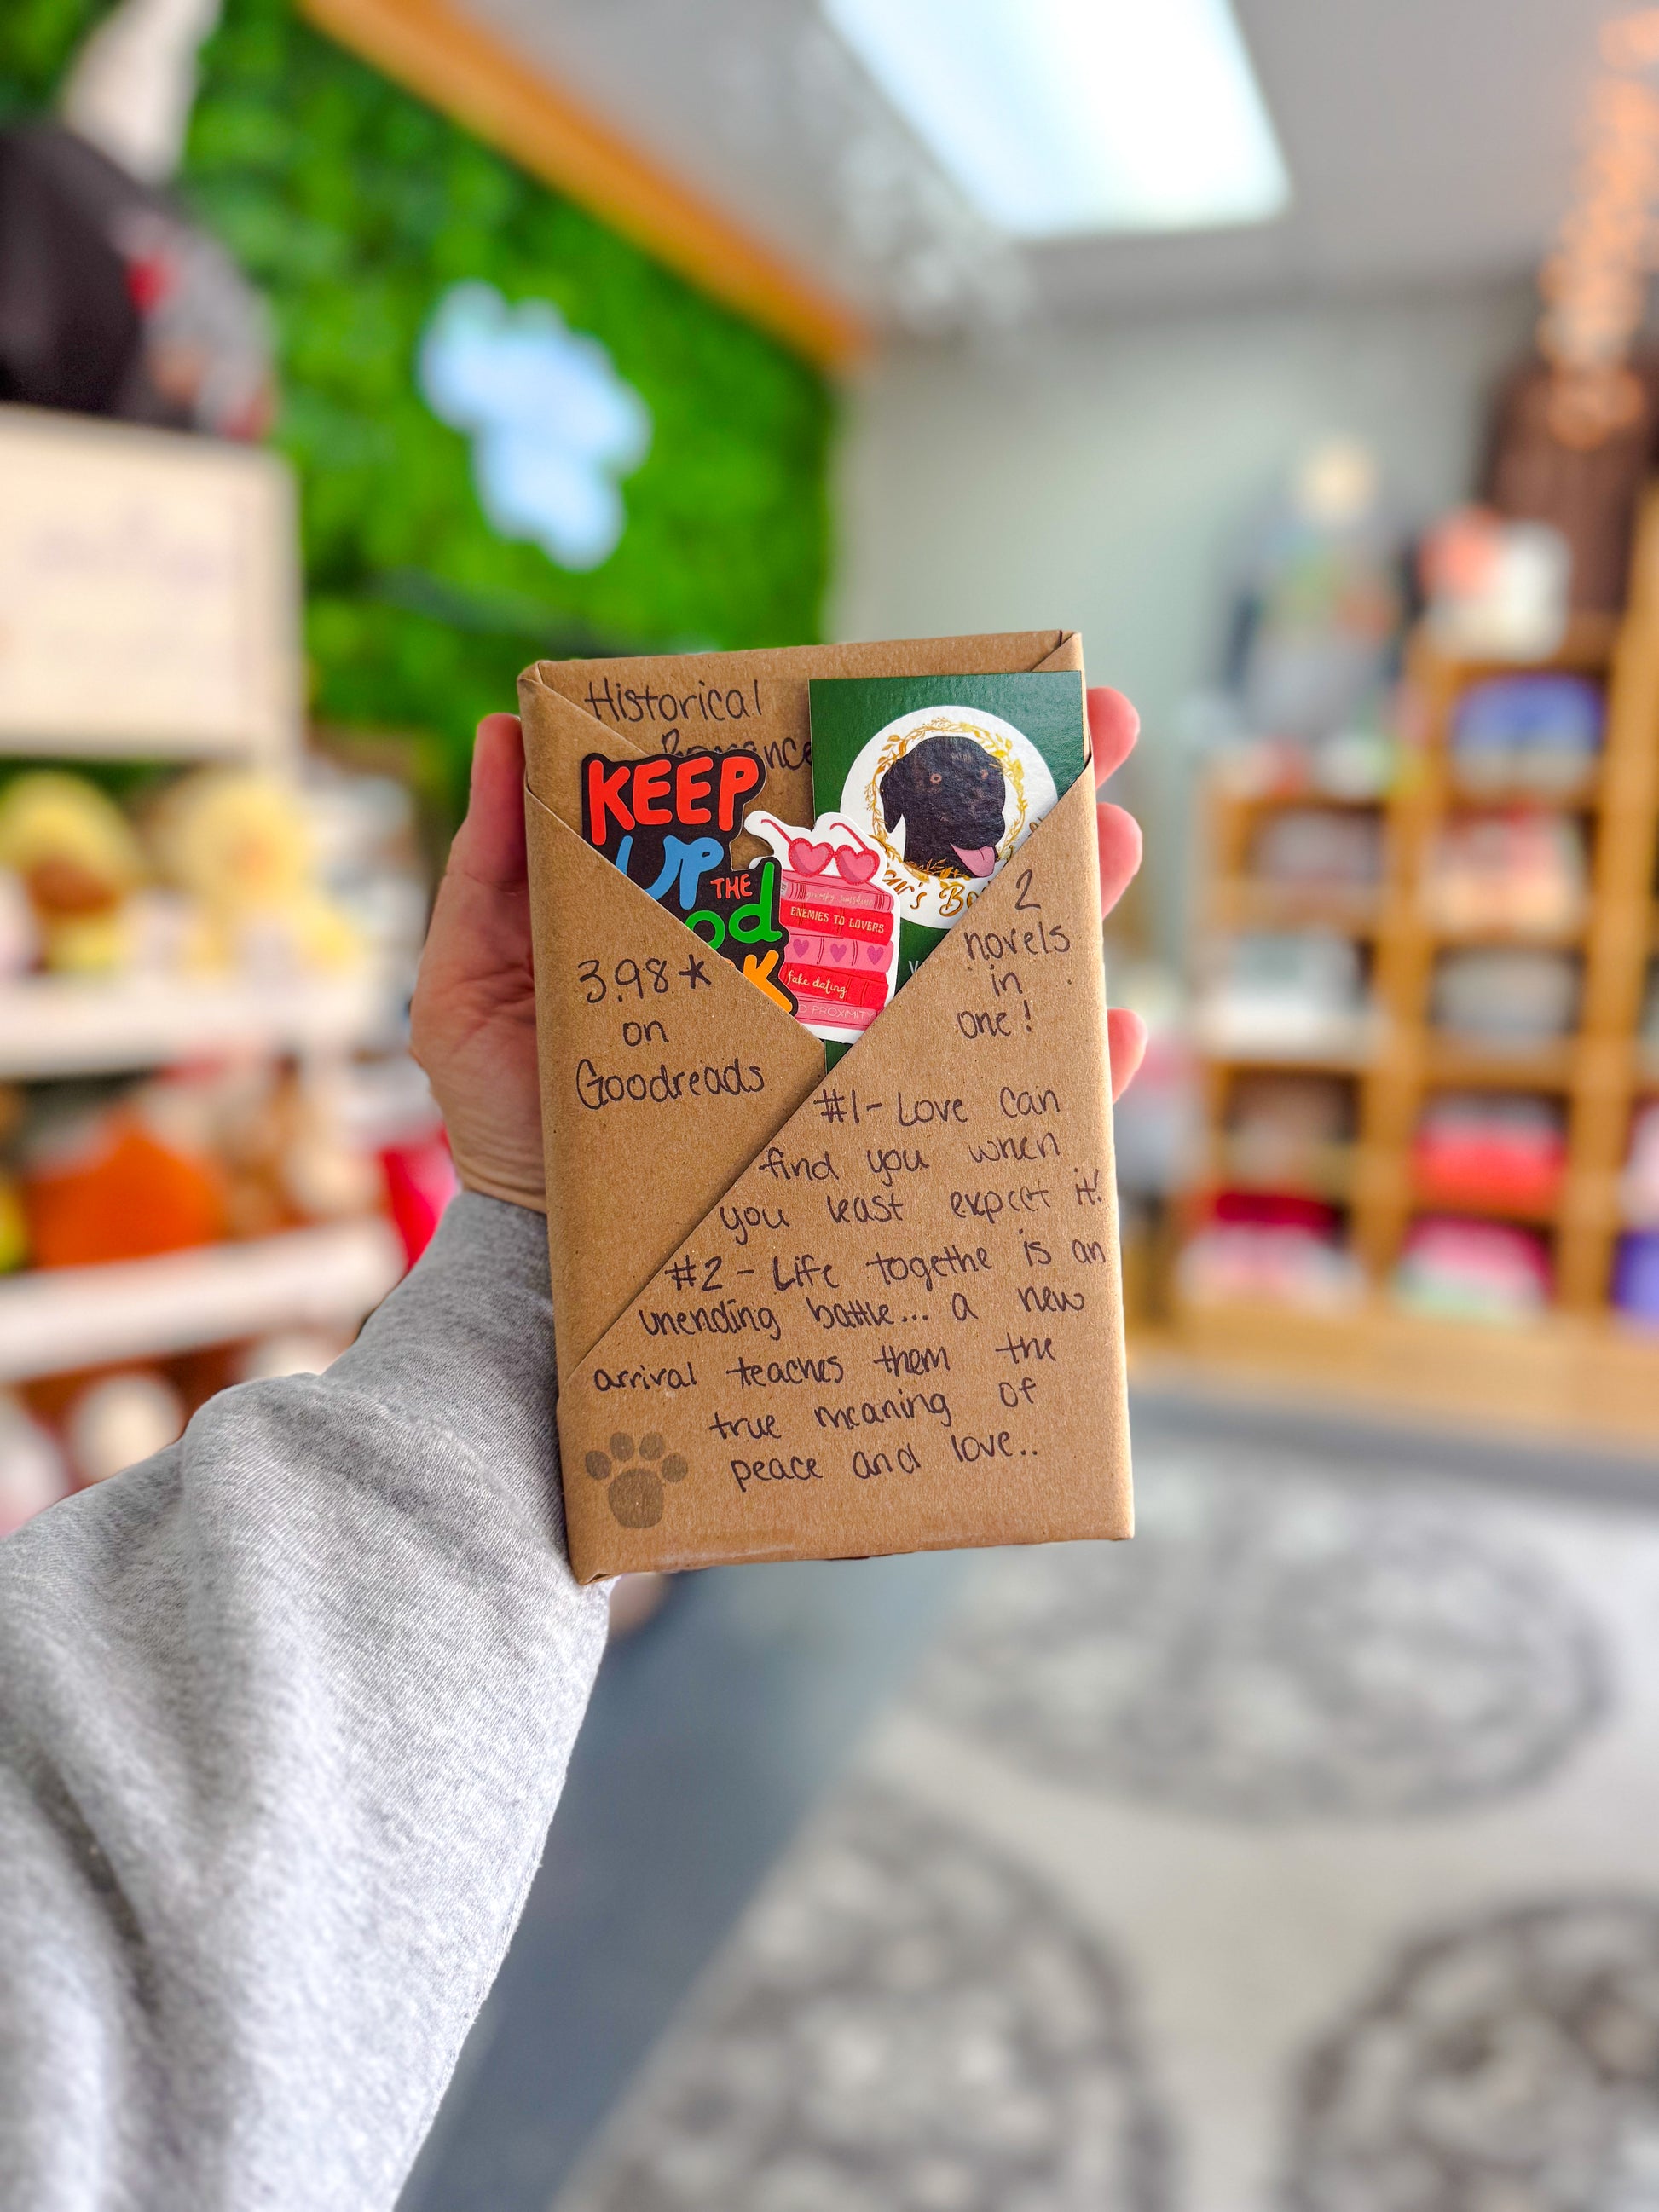 Historical
Romance
KEEP
UP THE
grumpy sunshine
ENEMIES TO LOVERS
fake dating
PROXIMITY
3.98*
on
Goodreads
2
novels
in
one!
#1- Love can
find you when
you least expect it!
#2 - Life togethe is an
unending battle... a new
arrival teaches them the
true meaning of
peace and love..